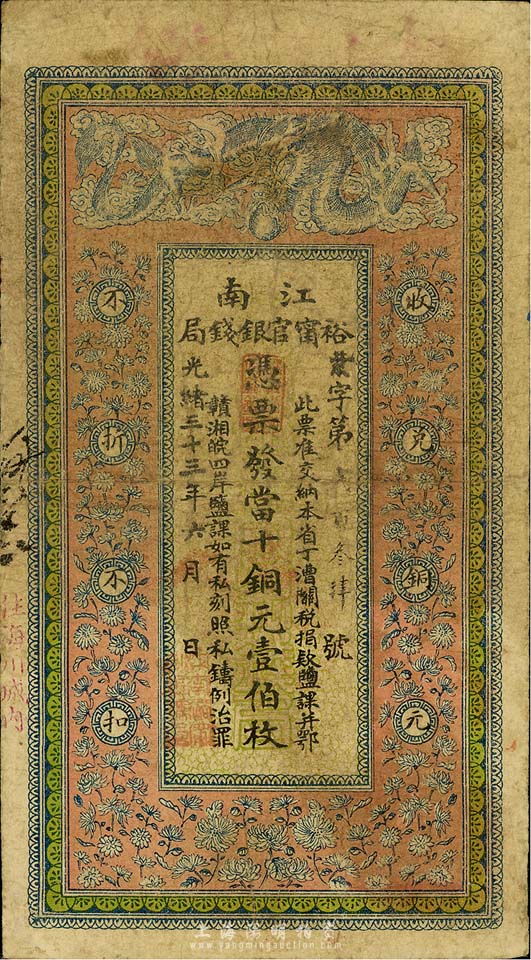 江南
裕甯官銀錢局
字第 百叁肆號
此票准交納本省丁漕關稅捐欵鹽課并鄂
憑票發當十銅元壹伯枚
贛湘皖四岸鹽課如有私刻照私鑄例治罪
光緒三十三年六月 日
收兌銅元
不折不扣
城內
上海陽明拍賣
www.yangmingauction.com